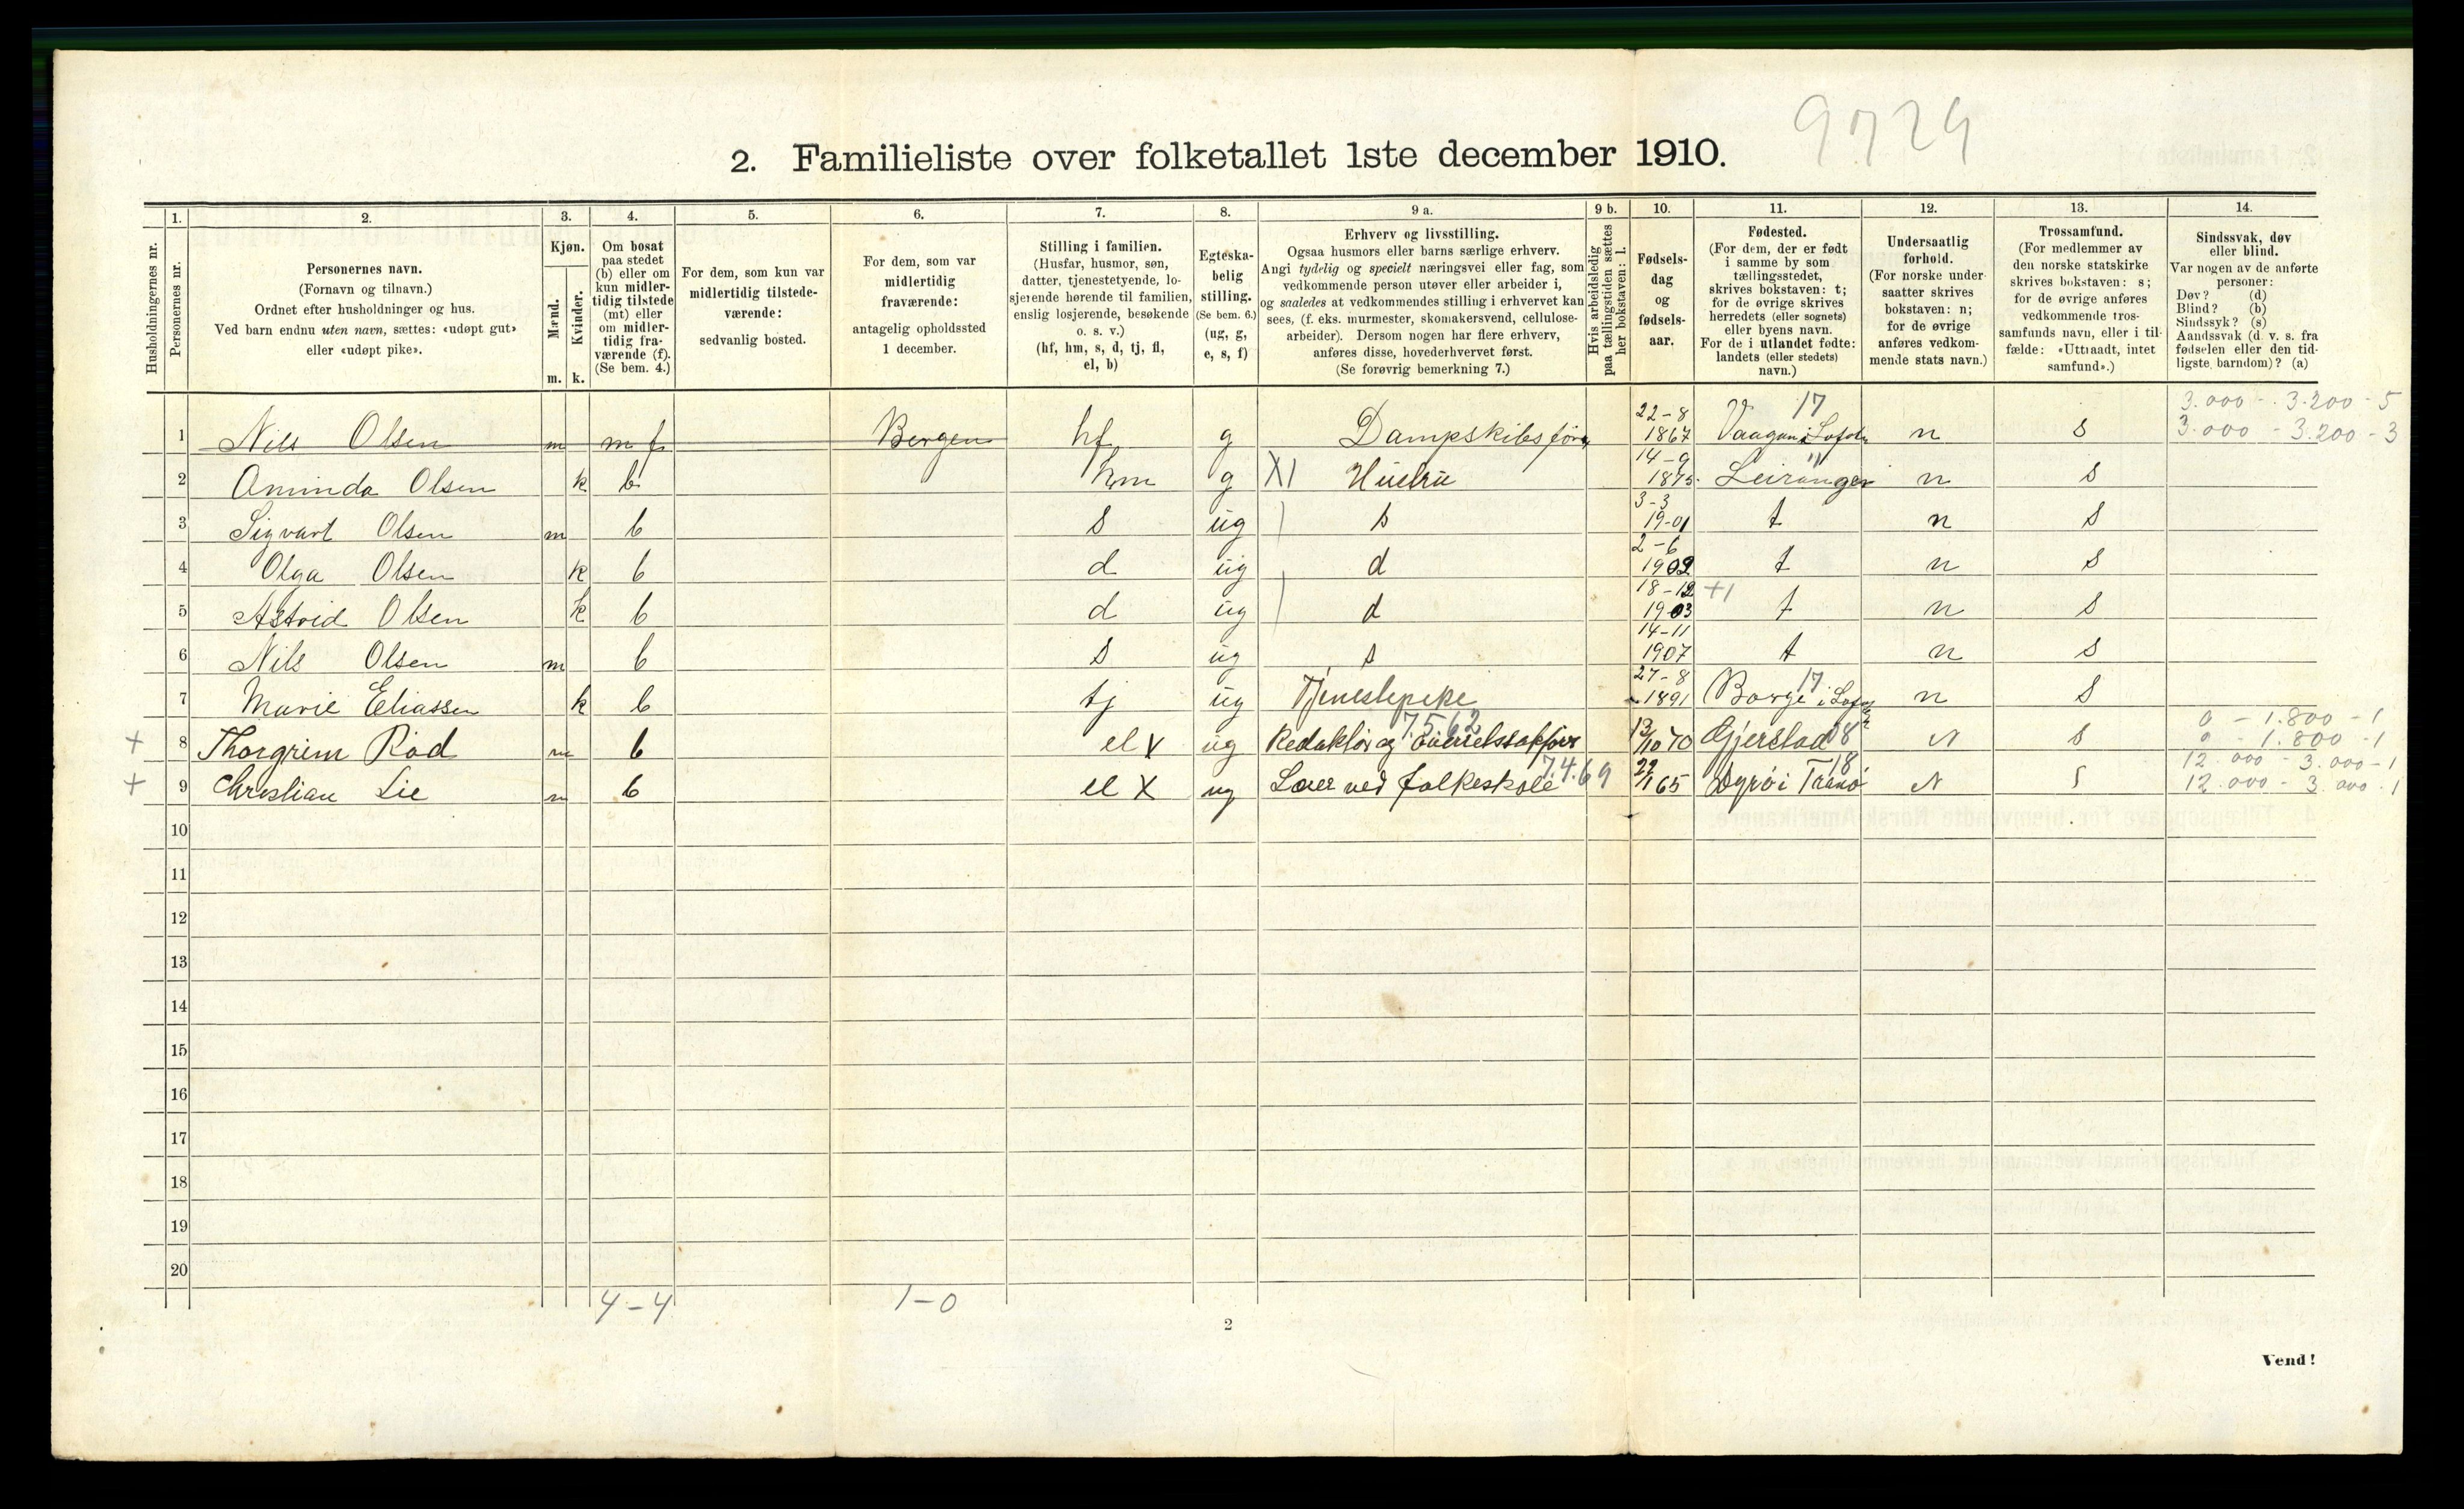 9729
2. Familieliste over folketallet 1ste december 1910.
Husholdningernes nr.
1.
Personernes nr.
2.
Personernes navn.
(Fornavn og tilnavn.)
Ordnet efter husholdninger og hus.
Ved barn endnu uten navn, sættes: «udøpt gut»
eller «udøpt pike».
3.
Kjøn.
Mænd.
Kvinder.
m. k.
4.
Om bosat
paa stedet
(b) eller om
kun midler-
tidig tilstede
(mt) eller
om midler-
tidig fra-
værende (f).
(Se bem. 4.)
5.
For dem, som kun var
midlertidig tilstede-
værende:
sedvanlig bosted.
6.
For dem, som var
midlertidig
fraværende:
antagelig opholdssted
1 december.
7.
Stilling i familien.
(Husfar, husmor, søn,
datter, tjenestetyende, lo-
sjerende hørende til familien,
enslig losjerende, besøkende
o. s. v.)
(hf, hm, s, d, tj, fl,
el, b)
8.
Egteska-
belig
stilling.
(Se bem. 6.)
(ug, g,
e, s, f)
9 a.
Erhverv og livsstilling.
Ogsaa husmors eller barns særlige erhverv.
Angi tydelig og specielt næringsvei eller fag, som
vedkommende person utøver eller arbeider i,
og saaledes at vedkommendes stilling i erhvervet kan
sees, (f. eks. murmester, skomakersvend, cellulose-
arbeider). Dersom nogen har flere erhverv,
anføres disse, hovederhvervet først.
(Se forøvrig bemerkning 7.)
9 b.
Hvis arbeidsledig
paa tællingstiden sættes
her bokstaven: l.
10.
Fødsels-
dag
og
fødsels-
aar.
11.
Fødested.
(For dem, der er født
i samme by som
tællingsstedet,
skrives bokstaven: t;
for de øvrige skrives
herredets (eller sognets)
eller byens navn.
For de i utlandet fødte:
landets (eller stedets)
navn.)
12.
Undersaatlig
forhold.
(For norske under-
saatter skrives
bokstaven: n;
for de øvrige
anføres vedkom-
mende stats navn.)
13.
Trossamfund.
(For medlemmer av
den norske statskirke
skrives bokstaven: s;
for de øvrige anføres
vedkommende tros-
samfunds navn, eller i til-
fælde: «Uttraadt, intet
samfund».)
14.
Sindssvak, døv
eller blind.
Var nogen av de anførte
personer:
Døv? (d)
Blind? (b)
Sindssyk? (s)
Aandssvak (d. v. s. fra
fødselen eller den tid-
ligste barndom)? (a)
3.000 - 3.200 - 5
1 Nils Olsen m m f Bergen hf g Dampskibsfører 22-8 1867 Vaagan i Lofoten 17 n s 3.000 - 3.200 - 3
2 Aminda Olsen k b hm g XI Hustru 14-9 1875 Leiranger n s
3 Sigvart Olsen m b s ug s 3-3 19-01 t n s
4 Olga Olsen k b d ug d 2-6 1902 t n s
5 Astrid Olsen k b d ug d 18-12 1903 +1 t n s
6 Nils Olsen m b s ug s 14-11 1907 t n s
7 Marie Eliassen k b tj ug Tjenestepike 27-8 1891 Borge i Lofoten 17 n s
0 - 1.800 - 1
+ 8 Thorgrim Rød m b el x ug Redaktør og 7562 13/10 70 Gjerstad 18 N s 0 - 1.800 - 1
12.000 - 3.000 - 1
+ 9 Christian Lie m b el X ug Lærer ved folkeskole 7.4.69 22/1 65 Dyrø i Tranø 18 N s 12.000 - 3.000 - 1
10
11
12
13
14
15
16
17
18
19
20
4-4 1-0
2
Vend!